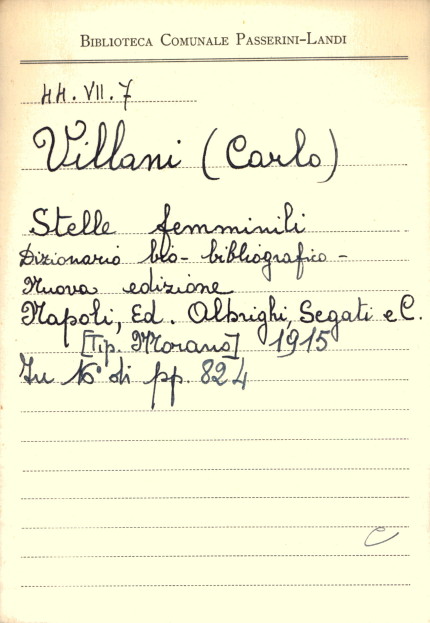 BIBLIOTECA COMUNALE PASSERINI-LANDI
44.VII.7
Villani (Carlo)
Stelle femminili
Dizionario bio-bibliografico -
Nuova edizione
Napoli, Ed. Albrighi, Segati e C.
[Tip. Morano] 1915
In 16° di pp. 824
C